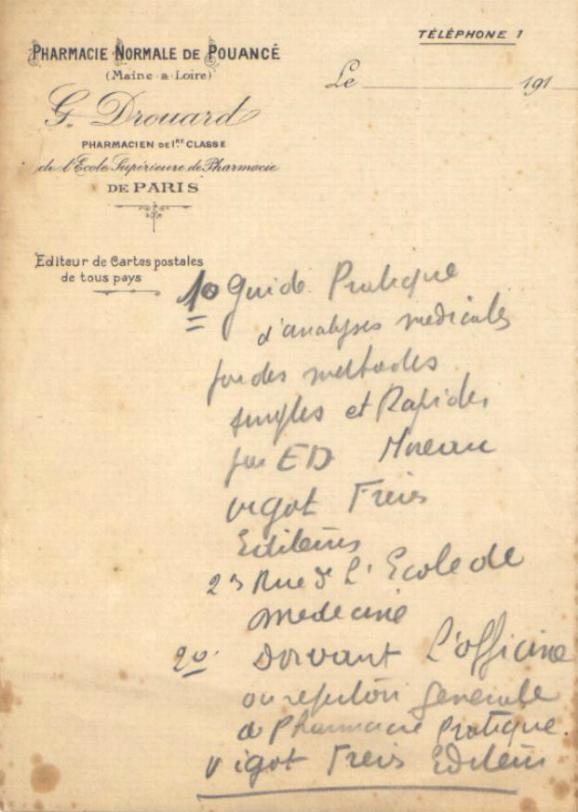 TÉLÉPHONE 1
PHARMACIE NORMALE DE POUANCÉ
(Maine-&-Loire)
Le 191
G. Drouard
PHARMACIEN DE 1RE CLASSE
de l'Ecole Supérieure de Pharmacie
DE PARIS
Editeur de Cartes postales
de tous pays
1o Guide Pratique
d'analyses medicales
par des methodes
simples et Rapides
par ED Moreau
Vigot Freres
Editeurs
23 Rue de L'Ecole de
medecine
2o Dorvault L'officine
ou repertoire generale
de Pharmacie Pratique.
Vigot Freres Editeurs